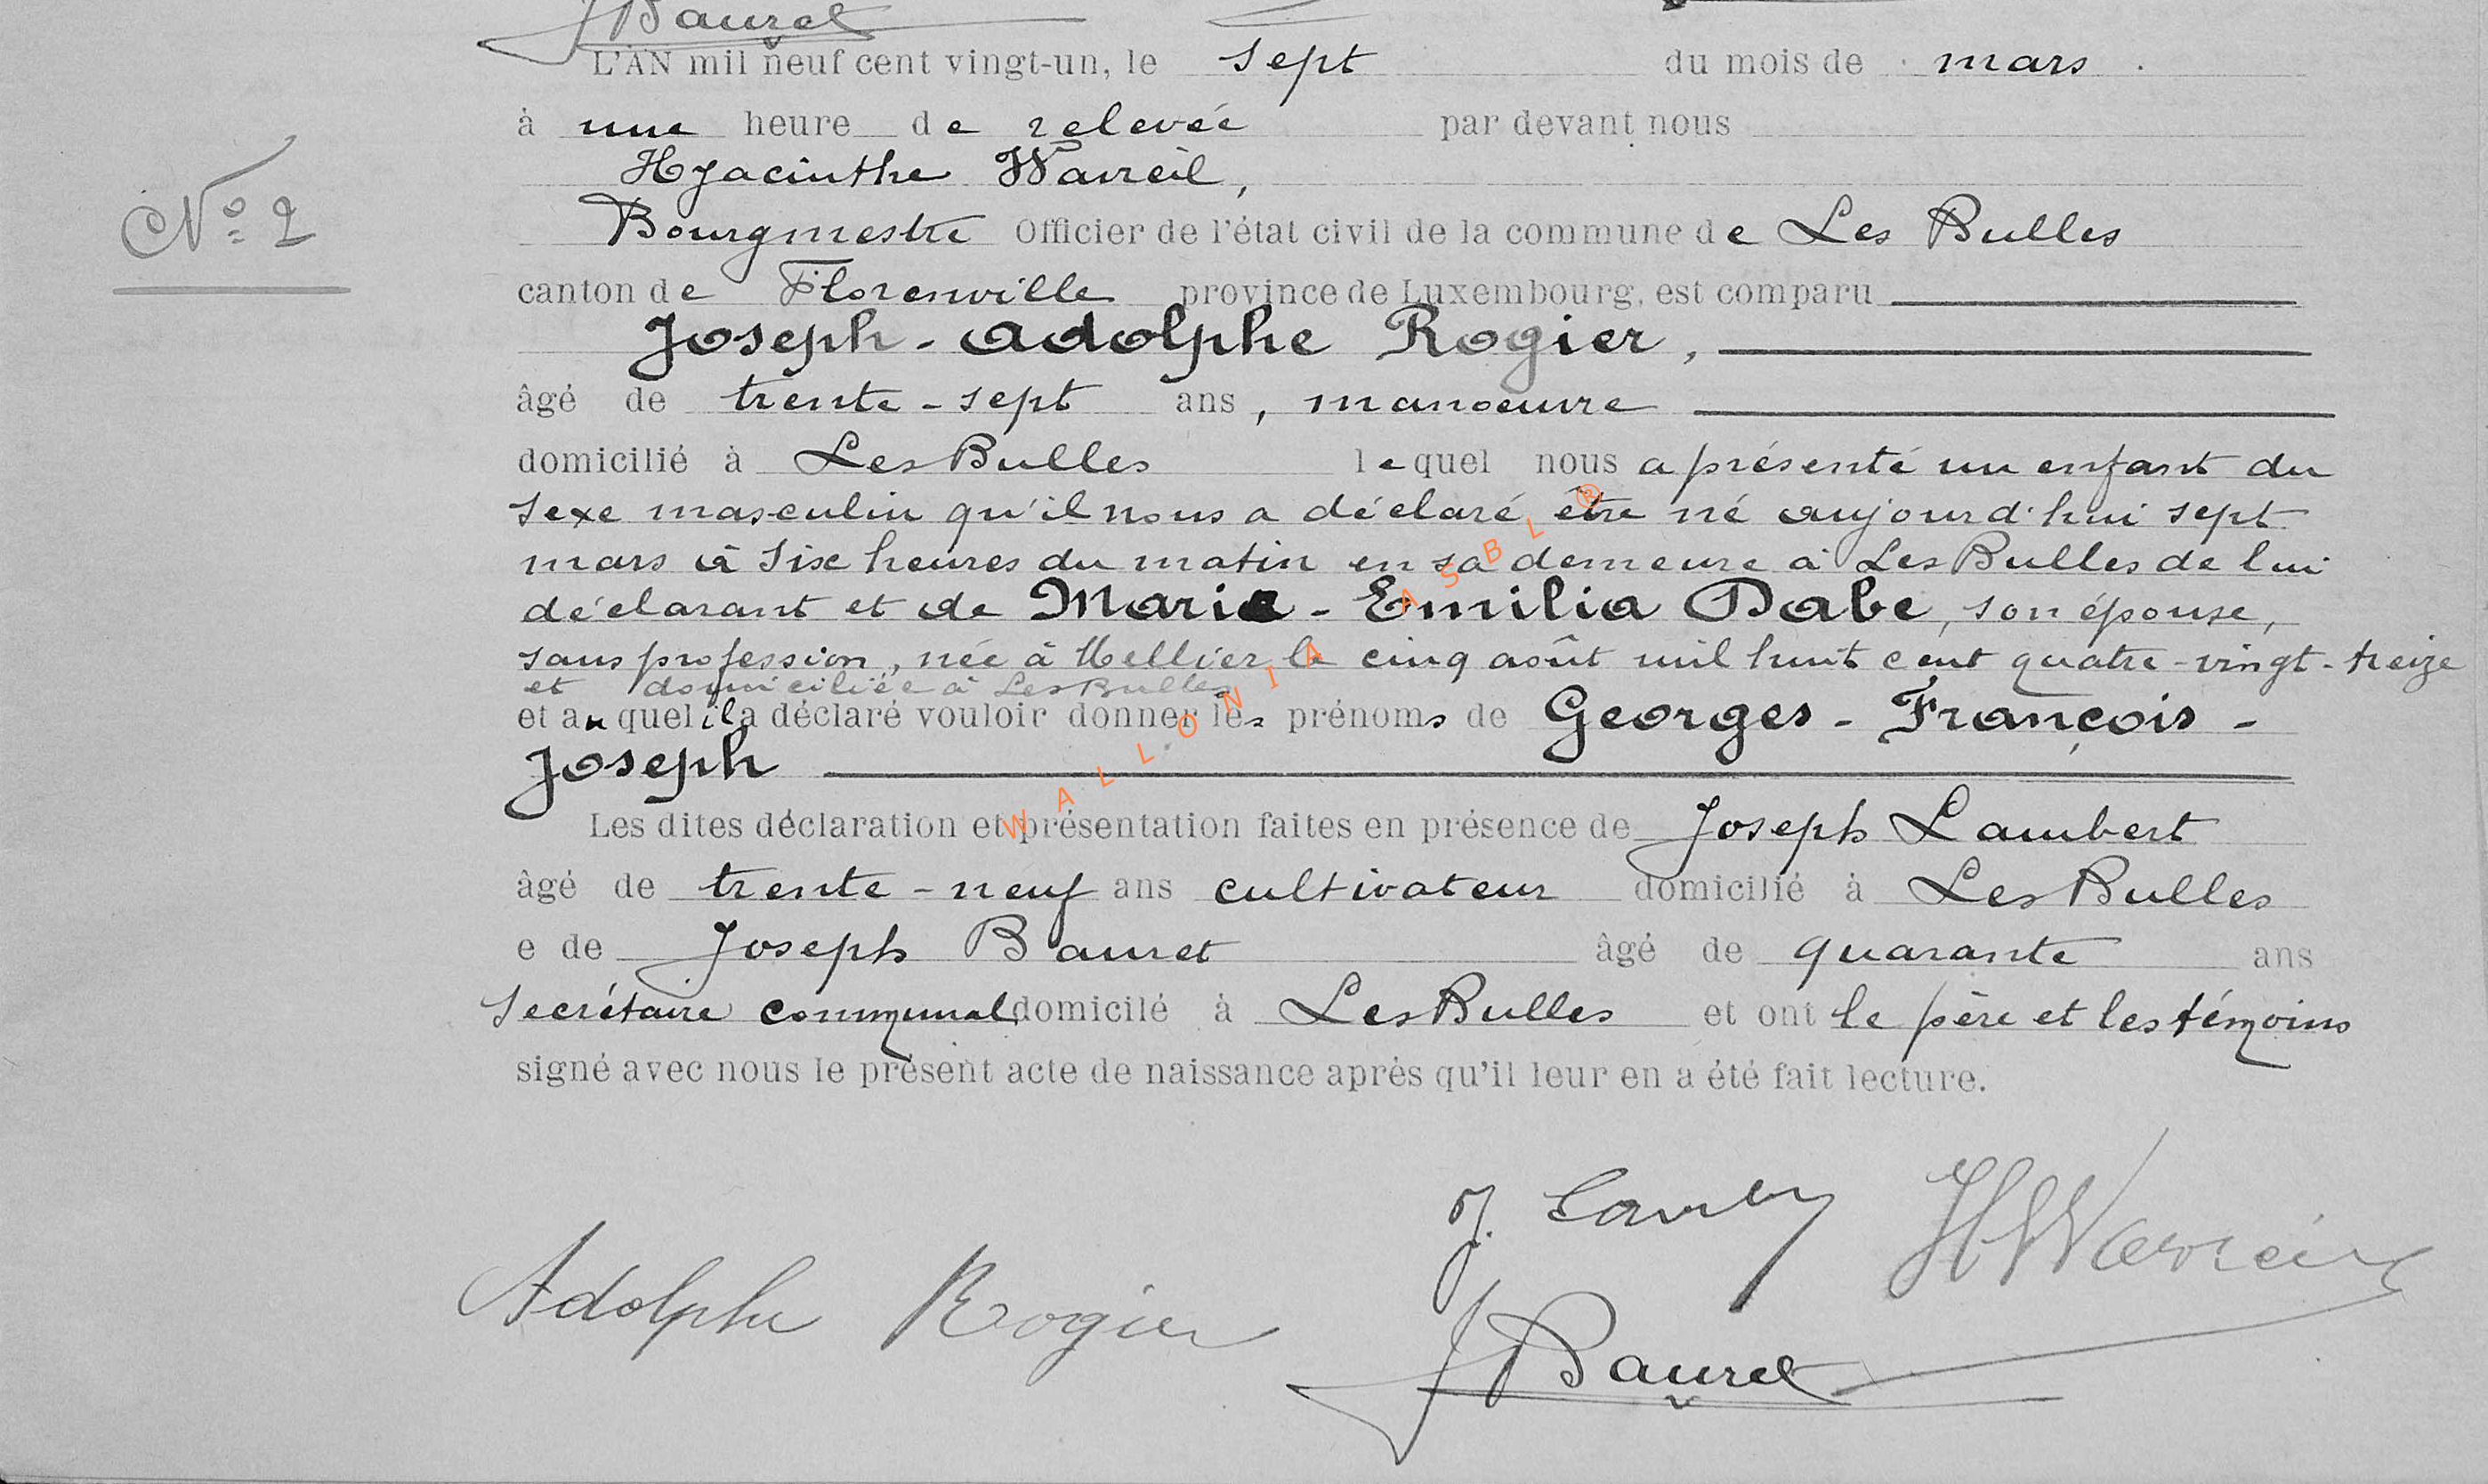 JBauret
L'AN mil neuf cent vingt-un, le sept du mois de mars
à une heure de relevée par devant nous
Hyacinthe Wavreil,
Bourgmestre Officier de l'état civil de la commune de Les Bulles
N° 2
canton de Florenville province de Luxembourg, est comparu
Joseph-Adolphe Rogier,
âgé de trente-sept ans, manoeuvre
domicilié à Les Bulles lequel nous a présenté un enfant du
sexe masculin qu'il nous a déclaré être né aujourd'hui sept
mars à six heures du matin en sa demeure à Les Bulles de lui
déclarant et de Marie-Emilia Dabe, son épouse,
sans profession, née à Mellier le cinq août mil huit cent quatre-vingt-treize
et domiciliée à Les Bulles
et auquel il a déclaré vouloir donner les prénoms de Georges-François-
Joseph
WALLONIA ASBL ®
Les dites déclaration et présentation faites en présence de Joseph Lambert
âgé de trente-neuf ans cultivateur domicilié à Les Bulles
e de Joseph Bauret âgé de quarante ans
secrétaire communal domicilé à Les Bulles et ont le père et les témoins
signé avec nous le présent acte de naissance après qu'il leur en a été fait lecture.
J. Lambert HWavreil
Adolphe Rogier
JBauret